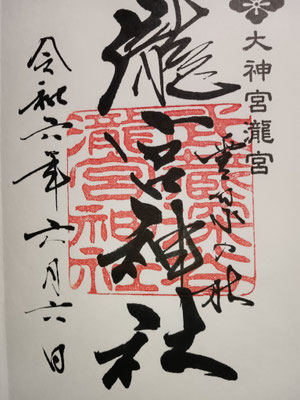 大神宮瀧宮
瀧宮神社
瀧宮神社
令和六年六月六日